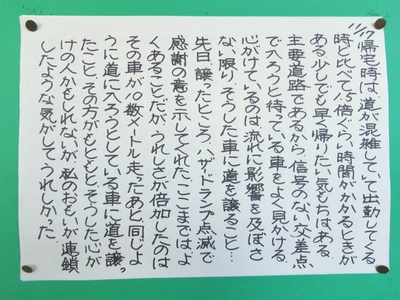 11/17
帰宅時は、道が混雑していて出勤してくる
時と比べて倍ぐらい時間がかかるときが
ある。少しでも早く帰りたい気もちはある。
主要道路であるから、信号のない交差点
で入ろうと待っている車をよく見かける。
心がけているのは流れに影響を及ぼさ
ない限り、そうした車に道を譲ること…
先日、譲ったところハザードランプ点滅で
感謝の意を示してくれた。ここまではよ
くあることだが、うれしさが倍加したのは
その車が10数メートル走ったあと、同じよ
うに道に入ろうとしている車に道を譲っ
たこと。その方がもともとそうした心が
けの人かもしれないが、私のおもいが連鎖
したような気がしてうれしかった。